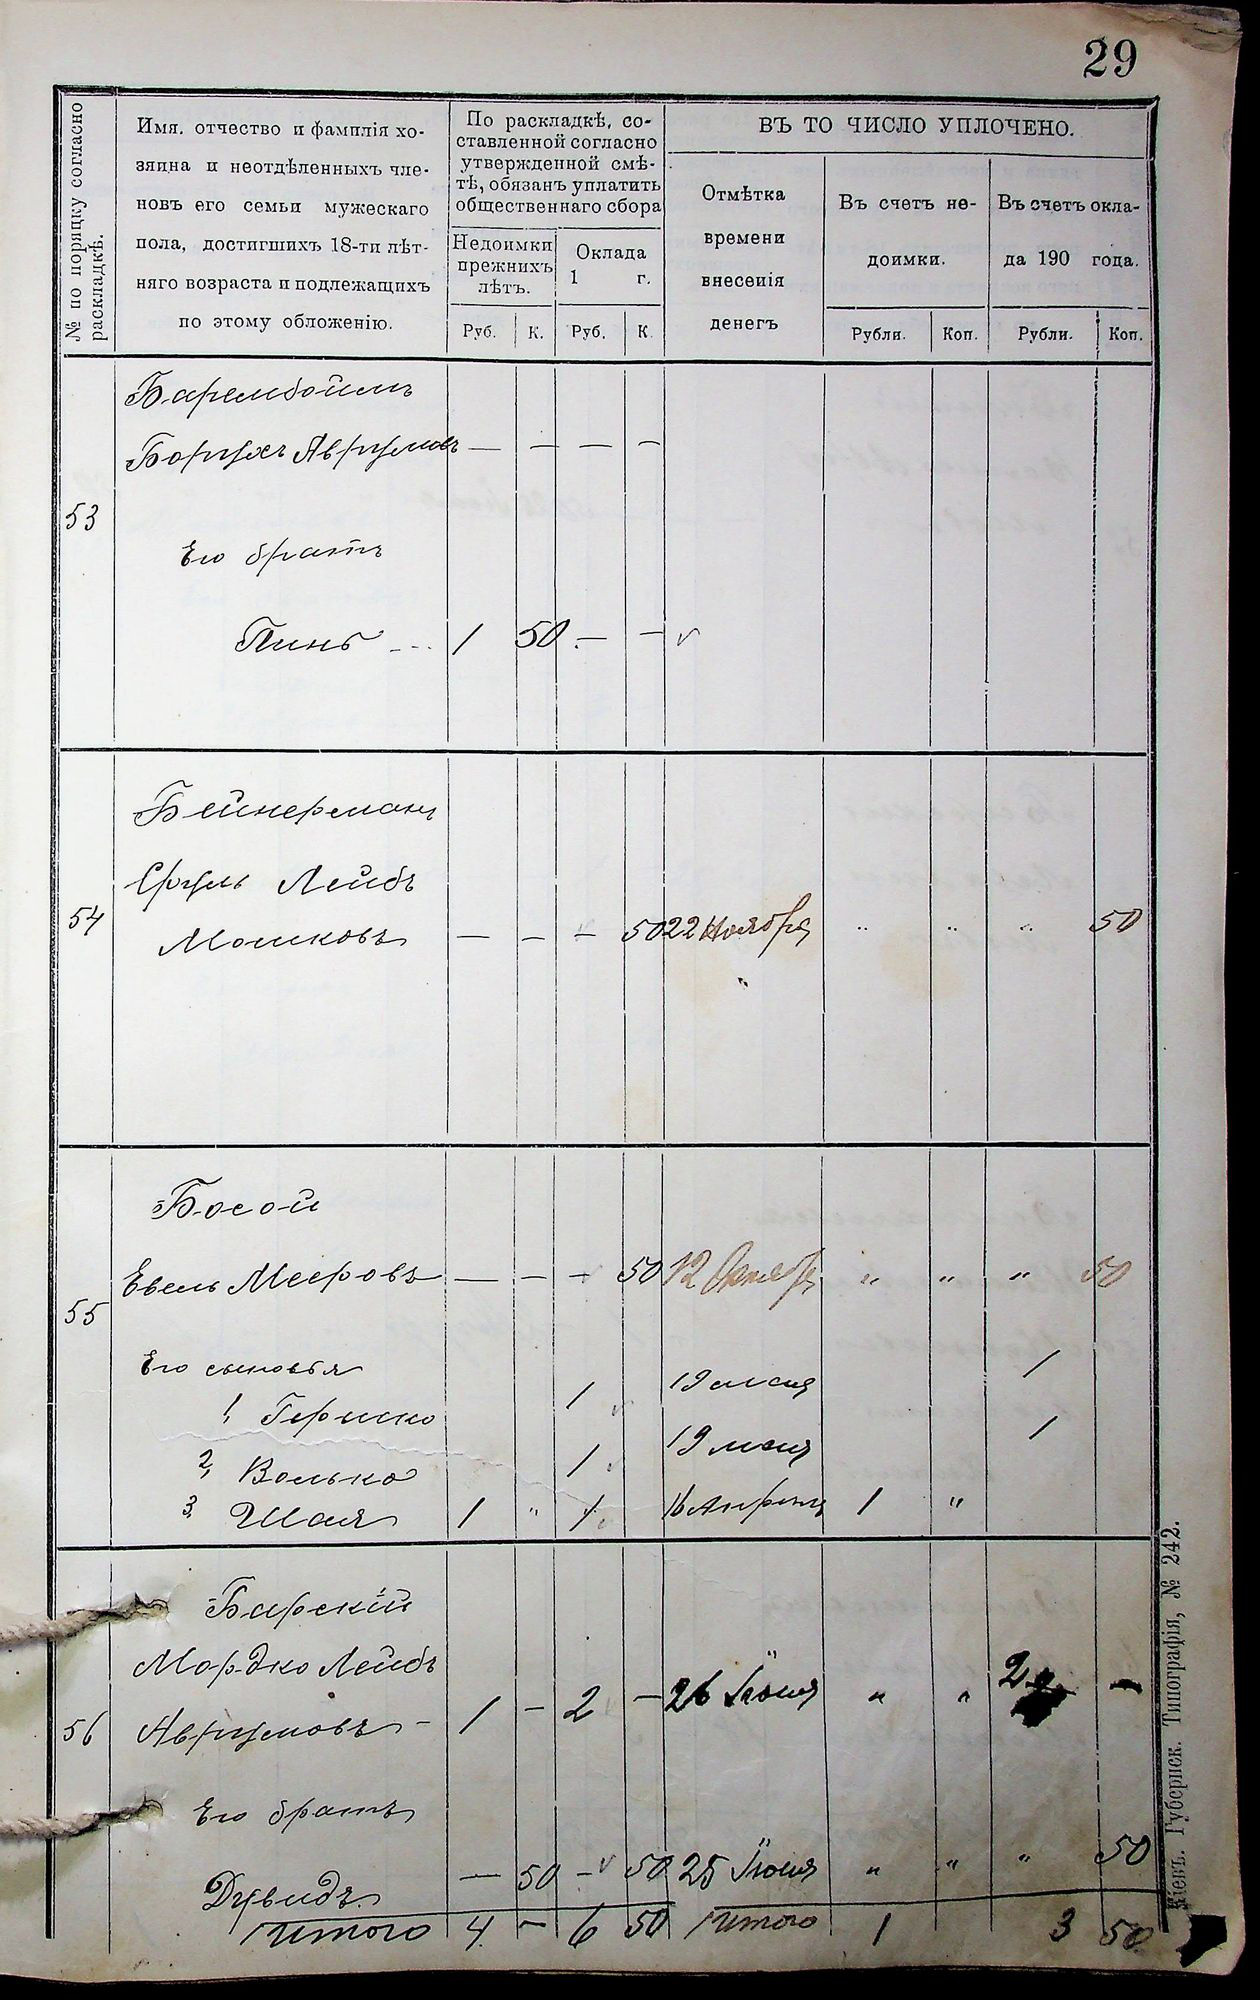 29
№ по порядку согласно раскладкѣ.
Имя, отчество и фамилія хо-
зяина и неотдѣленныхъ чле-
новъ его семьи мужескаго
пола, достигшихъ 18-ти лѣт-
няго возраста и подлежащихъ
по этому обложенію.
По раскладкѣ, со-
ставленной согласно
утвержденной смѣ-
тѣ, обязанъ уплатить
общественнаго сбора
Недоимки
прежнихъ
лѣтъ.
Оклада
1 г.
Руб. К. Руб. К.
ВЪ ТО ЧИСЛО УПЛОЧЕНО.
Отмѣтка
времени
внесенія
денегъ
Въ счетъ не-
доимки.
Въ счетъ окла-
да 190 года.
Рубли. Коп. Рубли. Коп.
Барембоймъ
Борухъ Аврумовъ — — — —
53
Его братъ
Пинь - - - 1 50 . — —
Бейнерманъ
Сруль Лейбъ
54
Мошковъ — — — 50 22 Ноября " " " 50
"
Босой
Евель Мееровъ — — — 50 12 Октября " " " 50
55
Его сыновья
1, Гершко 1 19 мая 1
2, Волько 1 19 мая 1
3, Шая 1 " 1 16 Апреля 1 "
Барскій
Мордко Лейбъ
56 Аврумовъ - 1 — 2 — 26 Іюня " " 2 —
Его братъ
Дувидъ. — 50 — 50 25 Іюня " " " 50
Итого 4 — 6 50 Итого 1 3 50
Кіевъ. Губернск. Типографія, № 242.